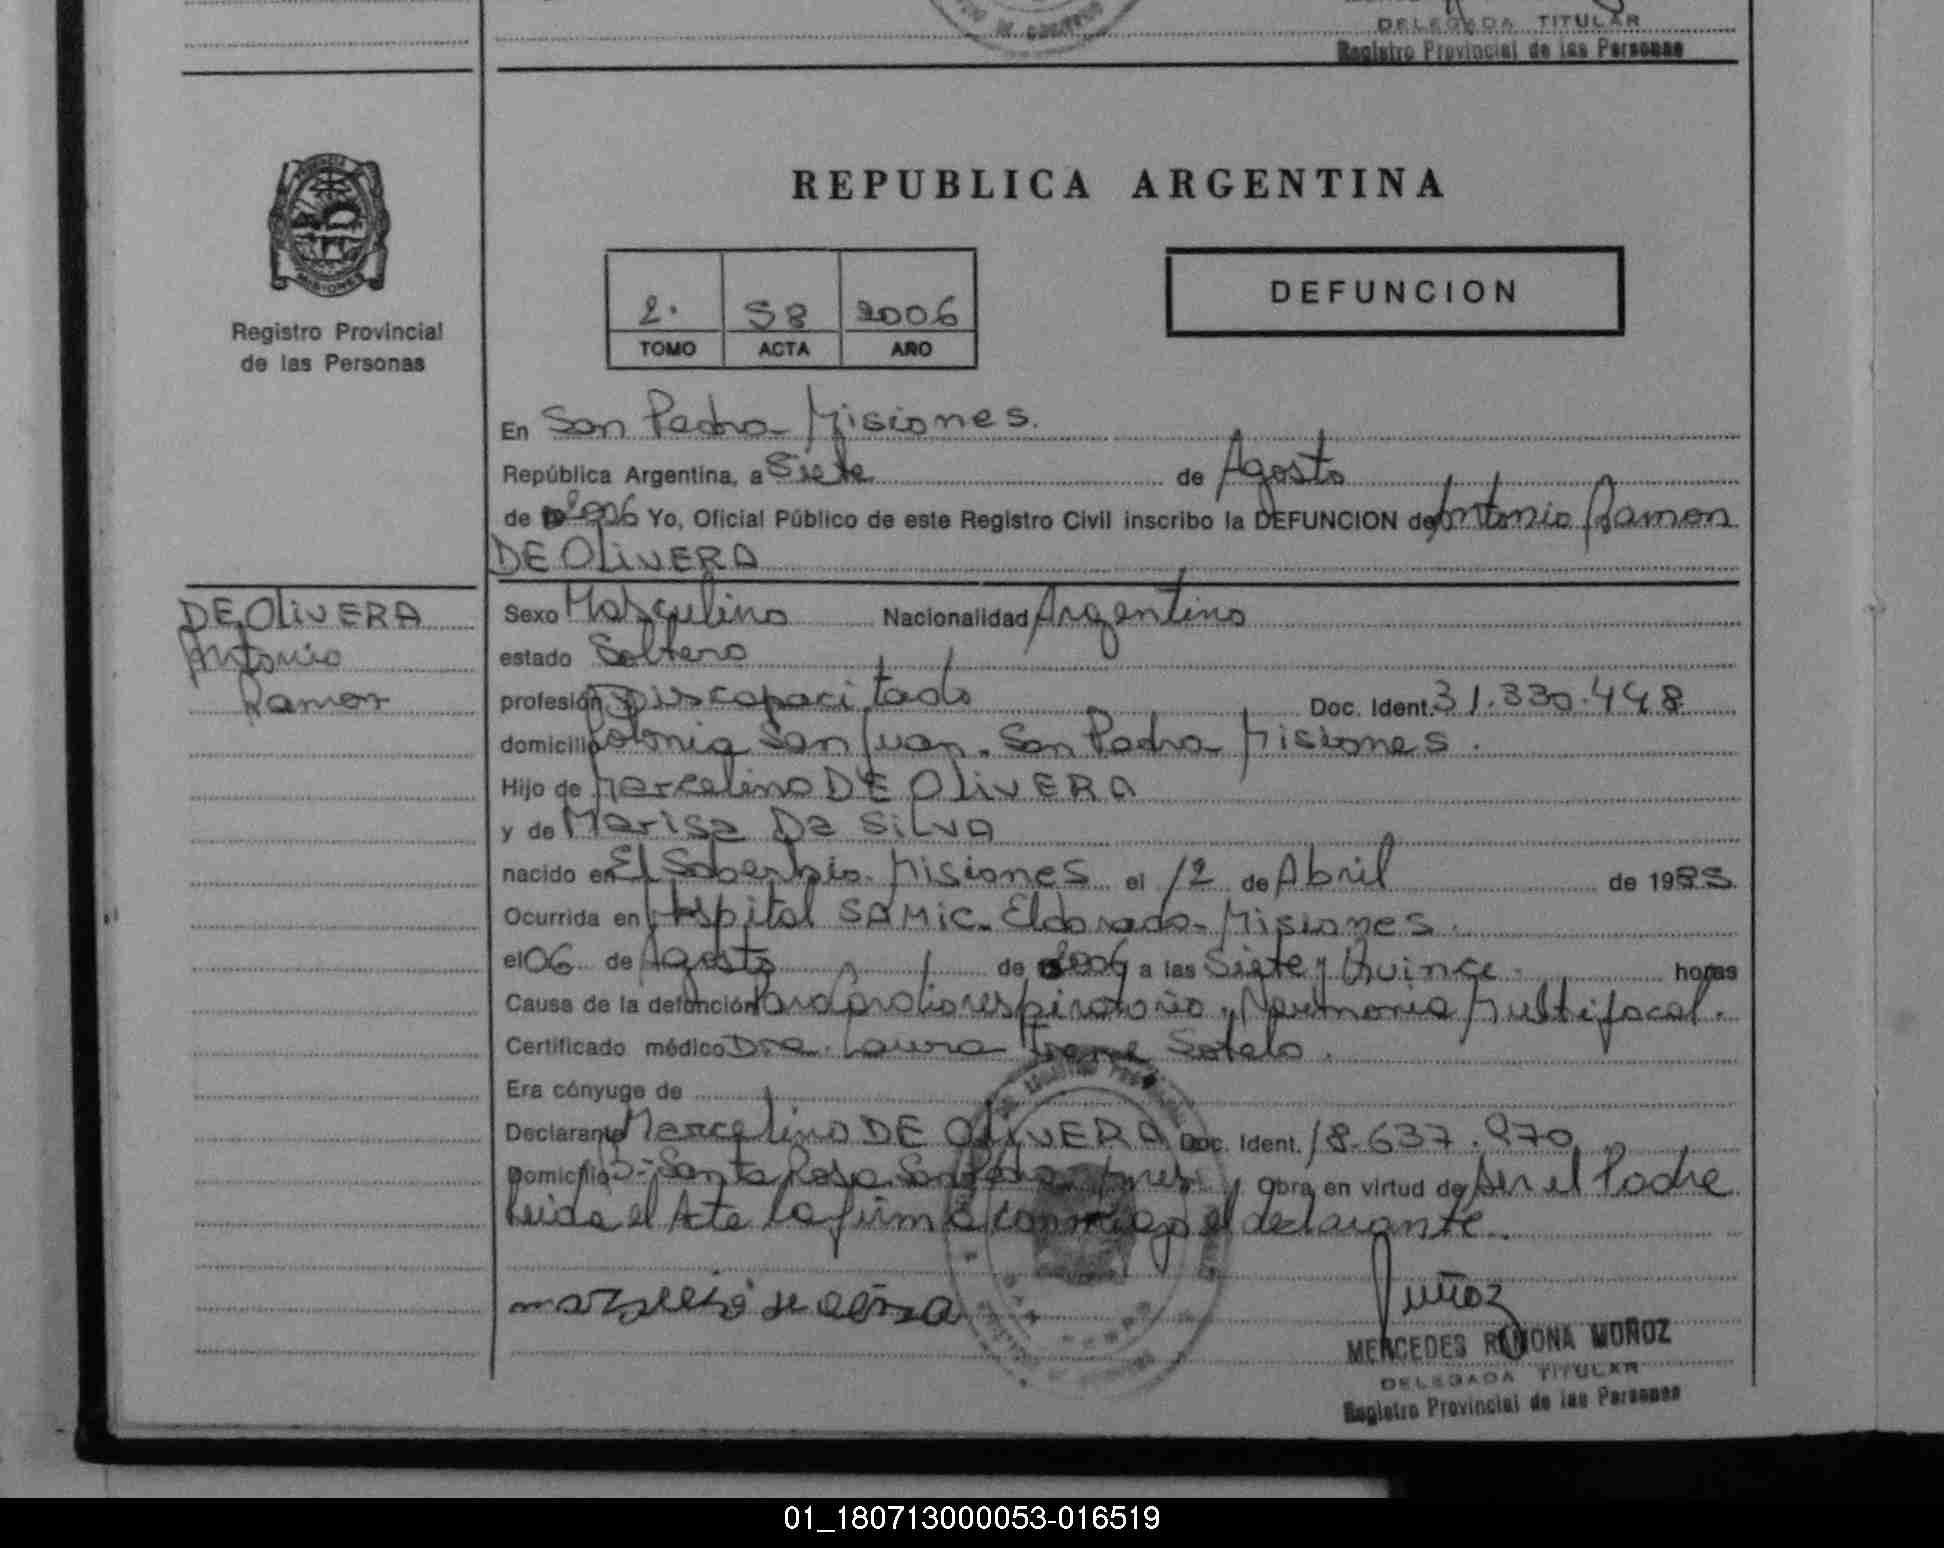 DELEGADA TITULAR
Registro Provincial de las Personas
REPUBLICA ARGENTINA
MISIONES
Registro Provincial
de las Personas
2. 58 2006
TOMO ACTA AÑO
DEFUNCION
En San Pedro - Misiones.
República Argentina, a Siete de Agosto
de 2006 Yo, Oficial Público de este Registro Civil inscribo la DEFUNCION de Antonio Ramon
DE OLIVERA
DE OLIVERA
Antonio
Ramon
Sexo Masculino Nacionalidad Argentino
estado Soltero
profesión Discapacitado Doc. Ident. 31.330.448
domicilio Colonia San Juan - San Pedro Misiones.
Hijo de Marcelino DE OLIVERA
y de Marisa Da SILVA
nacido en El Soberbio - Misiones el 12 de Abril de 1985
Ocurrida en Hospital SAMIC - Eldorado - Misiones.
el 06 de Agosto de 2006 a las Siete y Quince horas
Causa de la defunción Paro Cardiorespiratorio, Neumonia Multifocal.
Certificado médico Dra. Laura Irene Sotelo.
Era cónyuge de
Declarante Marcelino DE OLIVERA Doc. Ident. 18.637.970
Domicilio B- Santa Rosa San Pedro Obra en virtud de Ser el Padre
Leida el Acta la firma conmigo el declarante.
Muñoz
MERCEDES RAMONA MUÑOZ
DELEGADA TITULAR
Registro Provincial de las Personas
01_180713000053-016519